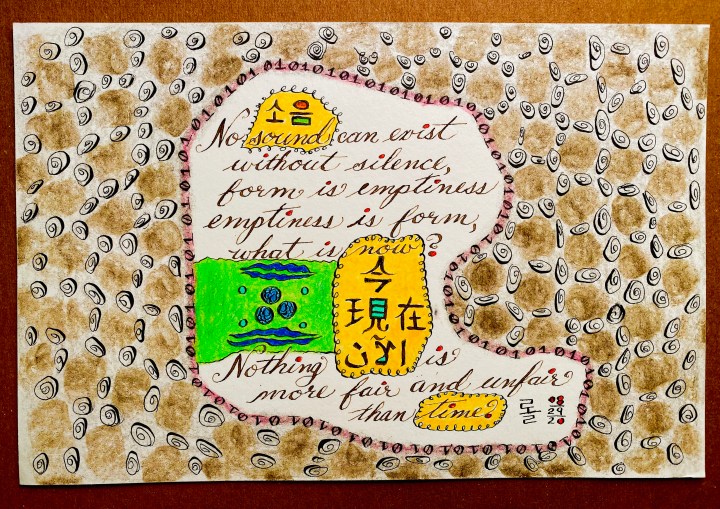 소음
No sound can exist
without silence,
form is emptiness
emptiness is form,
what is now?
今
現在
Nothing is
more fair and unfair
than time.
롤
08
29
20